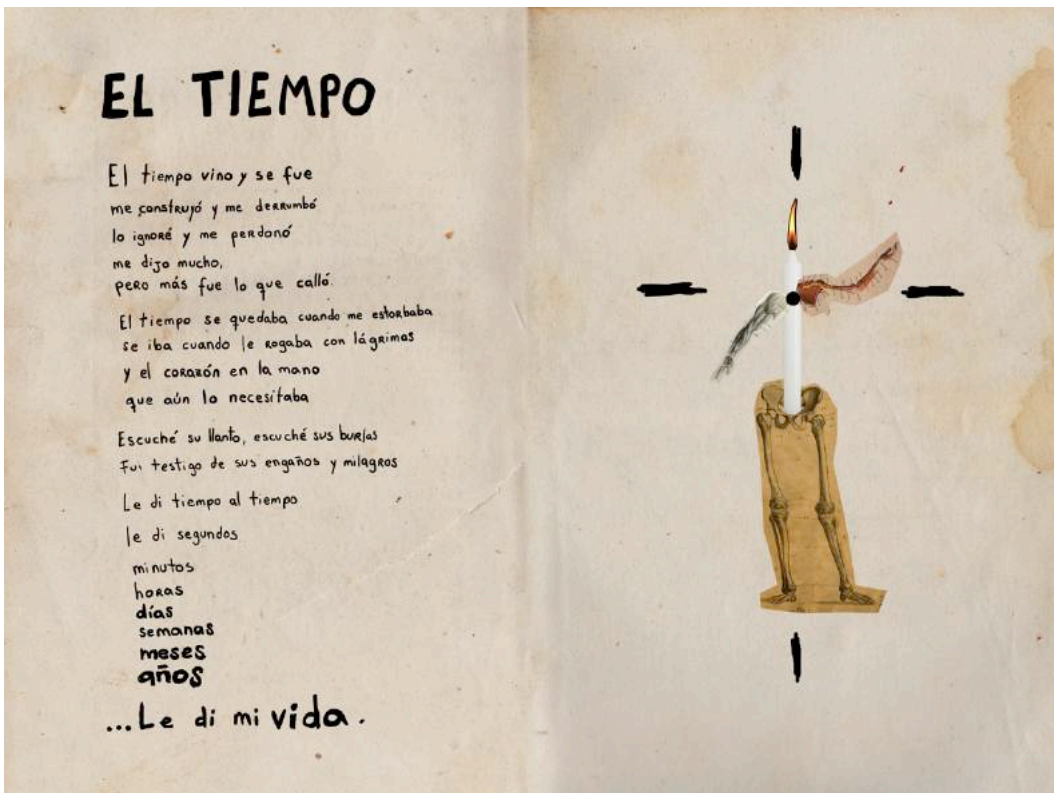 EL TIEMPO
El tiempo vino y se fue
me construyó y me derrumbó
lo ignoré y me perdonó
me dijo mucho,
pero más fue lo que calló.
El tiempo se quedaba cuando me estorbaba
se iba cuando le rogaba con lágrimas
y el corazón en la mano
que aún lo necesitaba
Escuché su llanto, escuché sus burlas
Fui testigo de sus engaños y milagros
Le di tiempo al tiempo
le di segundos
minutos
horas
días
semanas
meses
años
...Le di mi vida.